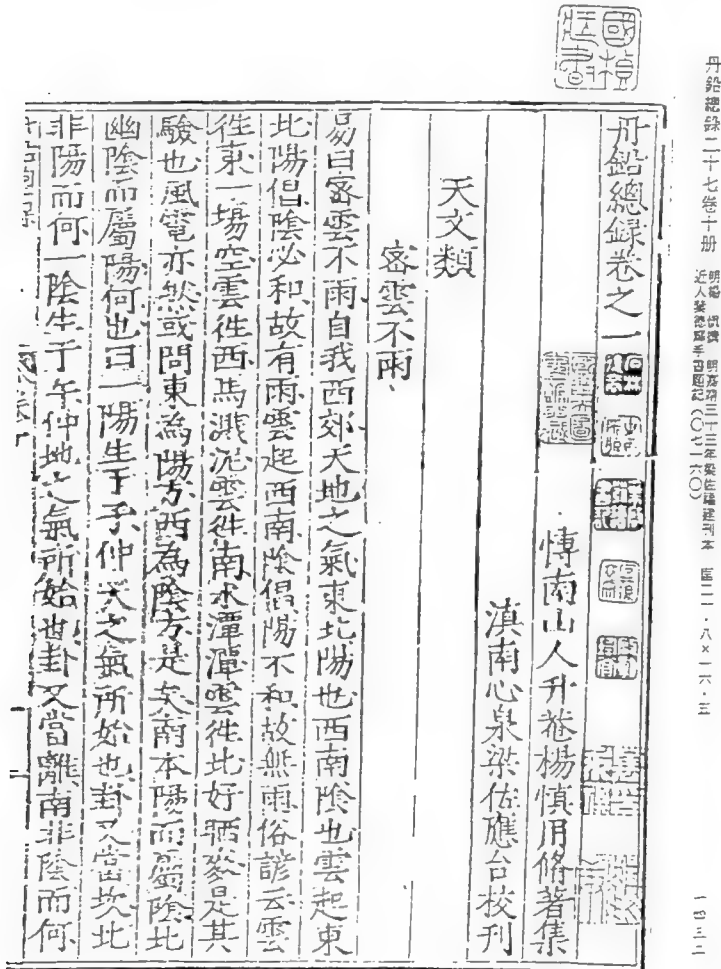 丹鉛總錄二十七卷十册
明楊 慎撰 明嘉靖三十三年梁佐福建刊本 匡二一·八×一六·五
近人葉德輝手書題記(〇七一六〇)
一四三二
丹鉛總錄卷之一
博南山人升菴楊慎用脩著集
滇南心泉梁佐應台校刊
天文類
密雲不雨
易曰密雲不雨自我西郊天地之氣東北陽也西南陰也雲起東
北陽倡陰必和故有雨雲起西南陰倡陽不和故無雨俗諺云雲
徃東一塲空雲徃西馬濺泥雲徃南水潭潭雲徃北好晒麥是其
驗也風電亦然或問東為陽方西為陰方是矣南本陽而屬陰北
幽陰而屬陽何也曰一陽生于子仲天之氣所始也卦又當坎北
非陽而何一陰生于午仲地之氣所始也卦又當離南非陰而何